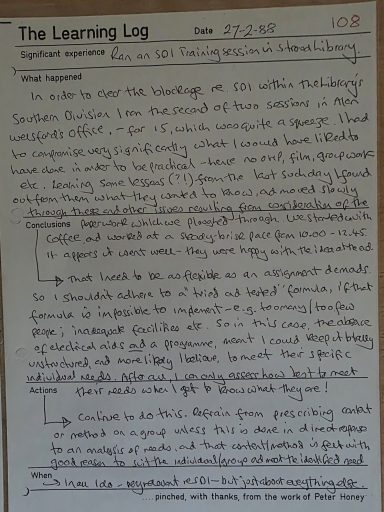 108
The Learning Log Date 27-2-88
Significant experience Ran an SDI Training session in Strood Library.
What happened
In order to clear the blockage re. SDI within the Library's
Southern Division I ran the second of two sessions in
's office, - for 15, which was quite a squeeze. I had
to compromise very significantly what I would have liked to
have done in order to be practical - hence no OHP, film, group work
etc. Learning some lessons (?!) from the last such day I found
out from them what they wanted to know, and moved slowly
through these and other issues resulting from consideration of the
Conclusions paperwork which we ploughed through. We started with
coffee and worked at a steady-brisk pace from 10.00 - 12.45.
It appears it went well - they were happy with the idea at the end.
That I need to be as flexible as an assignment demands.
So I shouldn't adhere to a "tried and tested" formula, if that
formula is impossible to implement - e.g. too many/too few
people; inadequate facilities etc. So in this case, the absence
of electrical aids and a programme, meant I could keep it totally
unstructured, and more likely, I believe, to meet their specific
individual needs. After all, I can only assess how best to meet
Actions their needs when I get to know what they are!
Continue to do this. Refrain from prescribing content
or method on a group unless this is done in direct response
to an analysis of needs, and that content/method is fixed with
good reason to suit the individual/group and meet the identified need
When In all I do - very relevant re SDI - but just about everything else.
....pinched, with thanks, from the work of Peter Honey